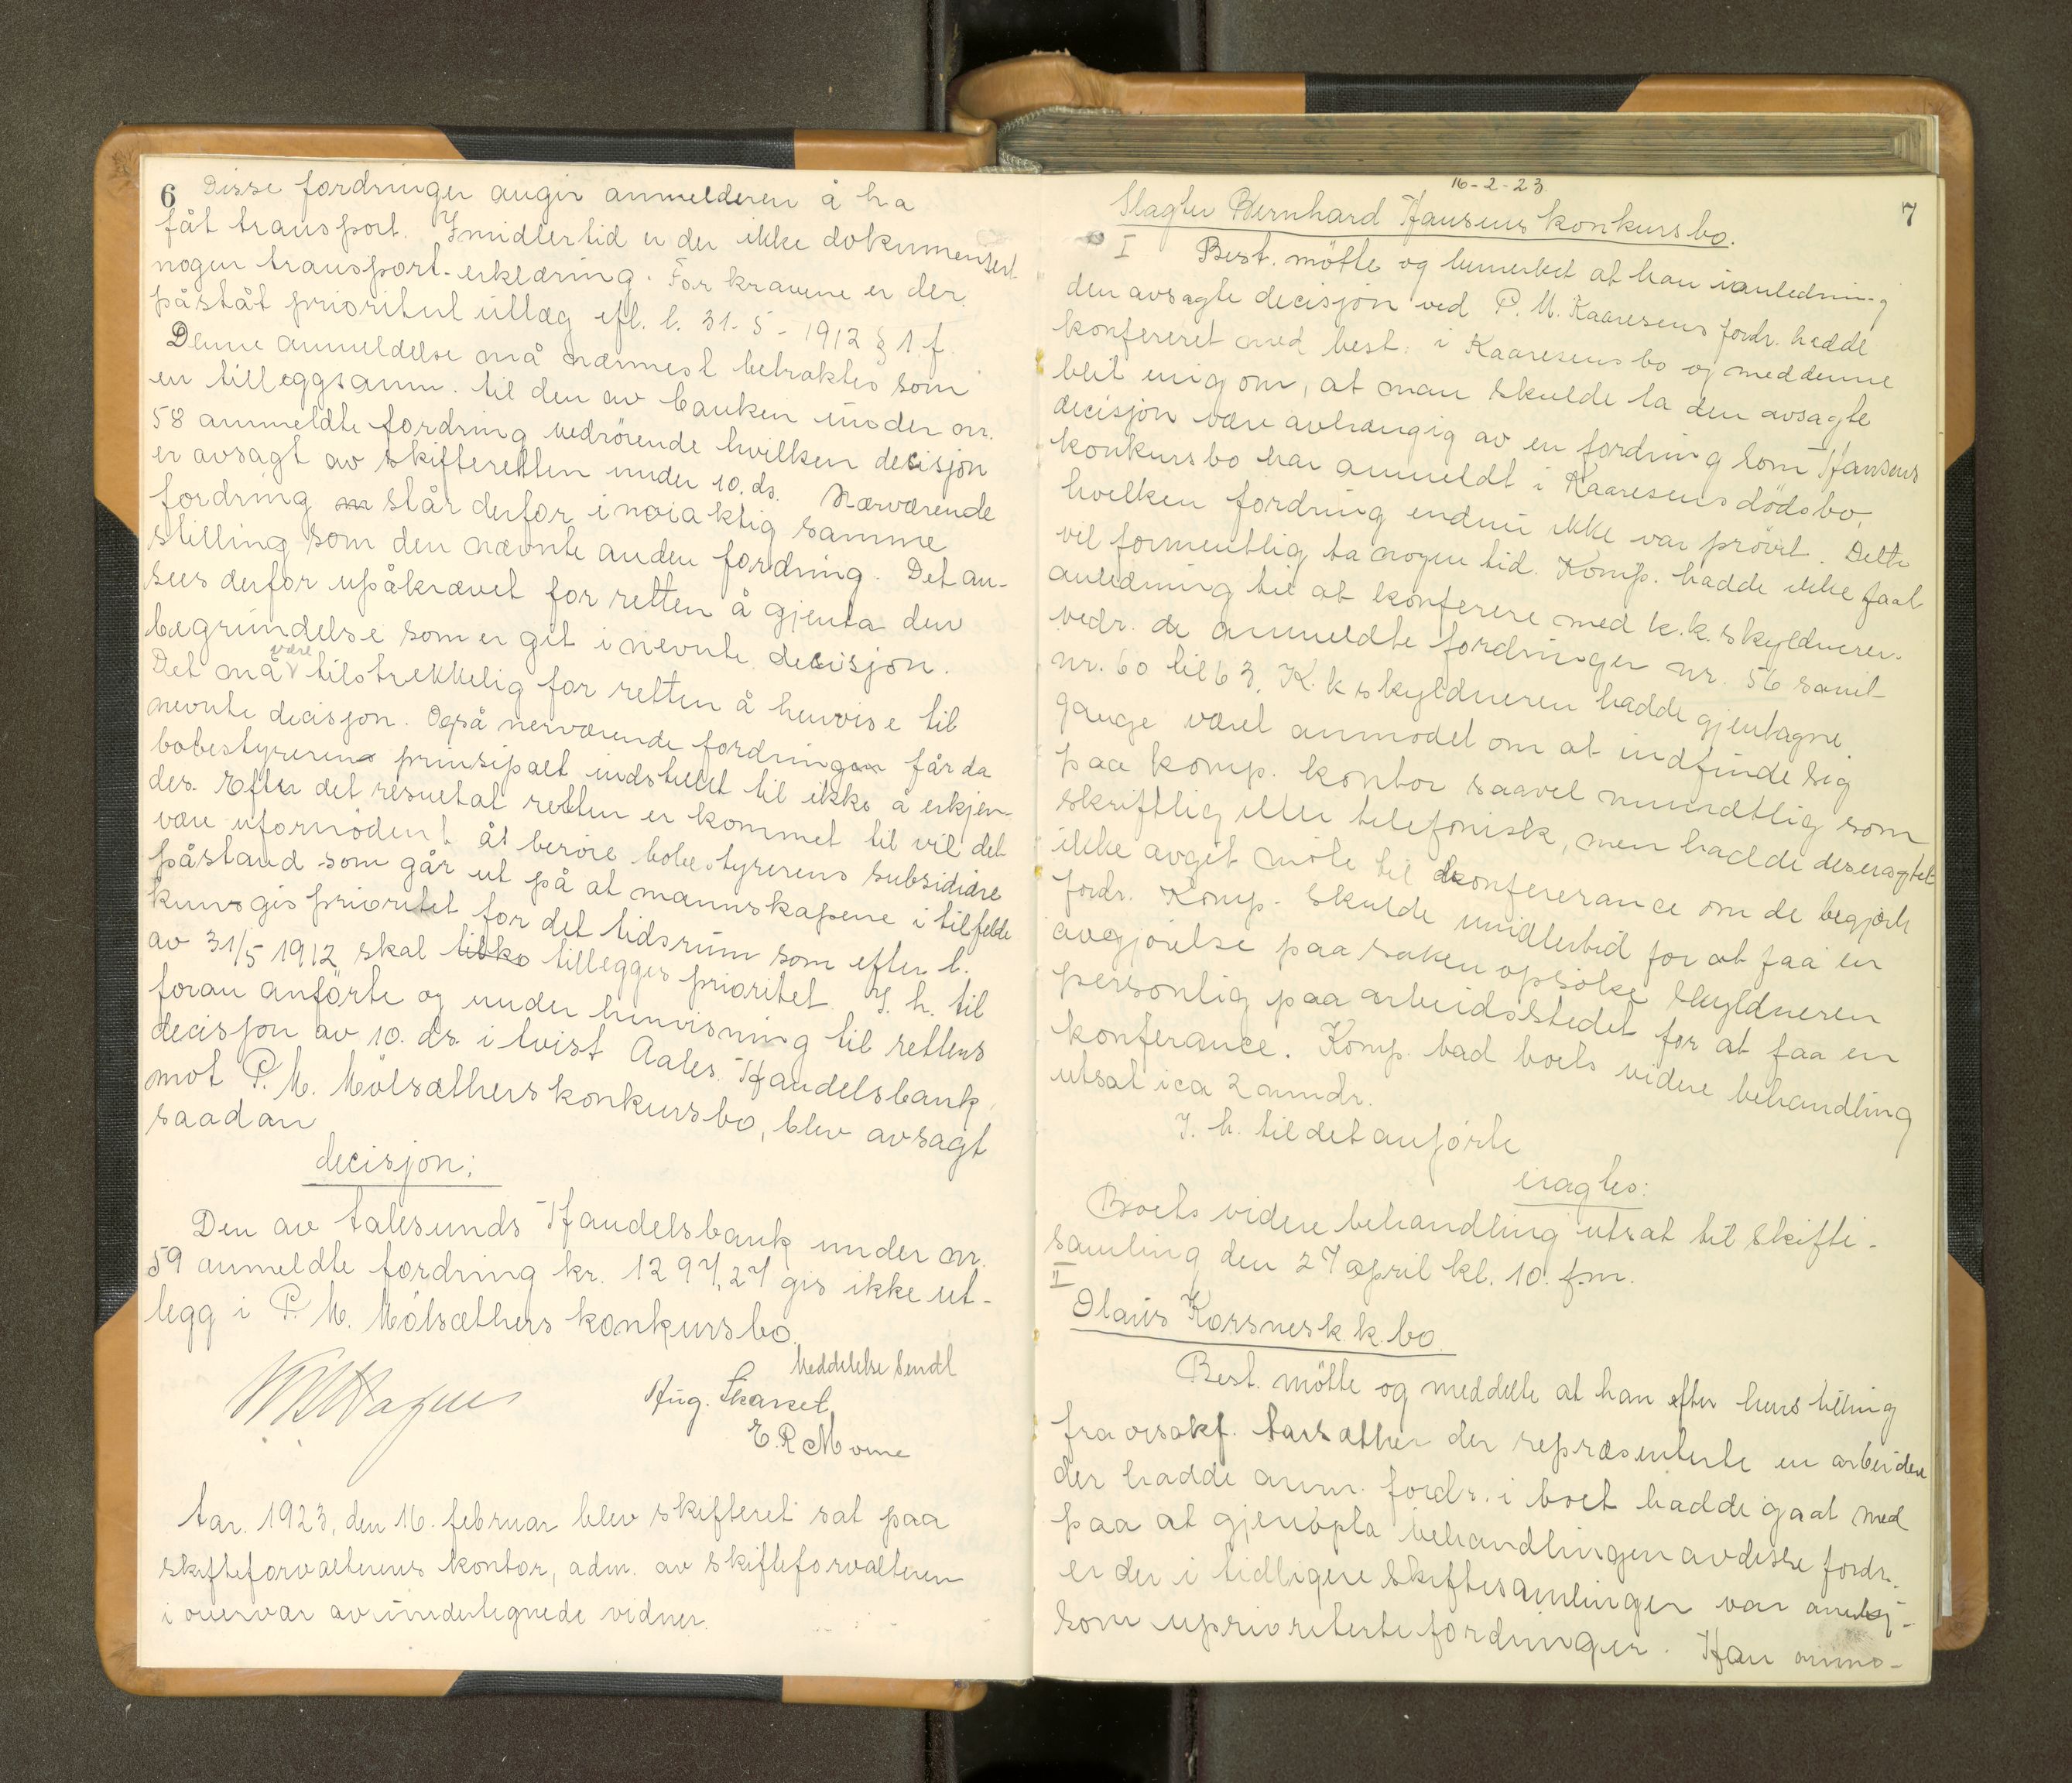 6 Disse fordringer angir anmelderen å ha
fåt transport. Imidlertid er der ikke dokumentert
nogen transport-erklæring. For kravene er der
påståt prioritert utlæg efl. l. 31-5-1912 § 1 f.
Denne anmeldelse må nærmest betraktes som
en tilleggsanm. til den av banken under nr.
58 anmeldte fordring vedrörende hvilken decisjon
er avsagt av skifteretten under 10. ds. Nærværende
fordring står derfor i nöiaktig samme
stilling som den nævnte anden fordring. Det an-
sees derfor upåkrævet for retten å gjenta den
begrundelse som er git i nevnte decisjon.
Det må være tilstrekkelig for retten å henvise til
nevnte decisjon. Også nerværende fordringen får da
bobestyreren prinsipalt indstillet til ikke å erkjen-
des. Efter det resultat retten er kommet til vil det
være ufornödent åt beröre bobestyrerens subsidiære
påstand som går ut på at mannskapene i tilfelde
kun gis prioritet for det tidsrum som efter l.
av 31/5 1912 skal tilko tillegges prioritet. I. h. til
foran anförte og under henvisning til rettens
decisjon av 10. ds. i tvist Aales. Handelsbank
mot P. M. Mölsæthers konkursbo, blev avsagt
saadan
decisjon:
Den av Aalesunds Handelsbank under nr.
59 anmeldte fordring kr. 1297,27 gis ikke ut-
legg i P. M. Mölsæthers konkursbo.
Meddelelse sendt
Hagen
Aug. Skaret
E. R. Morne
Aar. 1923, den 16. februar blev skifteret sat paa
skifteforvalterens kontor, adm. av skifteforvalteren
i overvær av undertegnede vidner.
16-2-23
7
Slagter Bernhard Hansens konkursbo.
I Best. mötte og bemerket at han i anledning
den avsagte decisjon ved P. M. Kaaresens fordr. hadde
konfereret med best. i Kaaresens bo og med denne
blit enig om, at man skulde la den avsagte
decisjon være avhængig av en fordring som Hansens
konkursbo har anmeldt i Kaaresens dödsbo,
hvilken fordring endnu ikke var prövet. Dette
vil formentlig ta nogen tid. Komp. hadde ikke faat
anledning til at konferere med k.k. skyldneren
vedr. de anmeldte fordringer nr. 56 samt
nr. 60 til 63. K.k skyldneren hadde gjentagne
gange været anmodet om at indfinde sig
paa komp. kontor saavel mundtlig som
skriftlig eller telefonisk, men hadde desuagtet
ikke avgit möte til konfererance om de begjærte
fordr. Komp. skulde imidlertid for at faa en
avgjörelse paa saken opsöke skyldneren
personlig paa arbeidsstedet for at faa en
konferance. Komp. bad boets videre behandling
utsat i ca 2 mndr.
I. h. til det anförte
eragtes:
Boets videre behandling utsat til skifte-
samling den 27 april kl. 10. fm.
II
Olaus Korsnes k. k. bo.
Best. mötte og meddelte at han efter henstilling
fra orsakf. Aarsæther der repræsenterte en arbeider
der hadde anm. fordr. i boet hadde gaat med
paa at gjenopta behandlingen av disse fordr.
er der i tidligere skiftesamlinger var anerkj-
som uprioriterte fordringer. Han anmo-